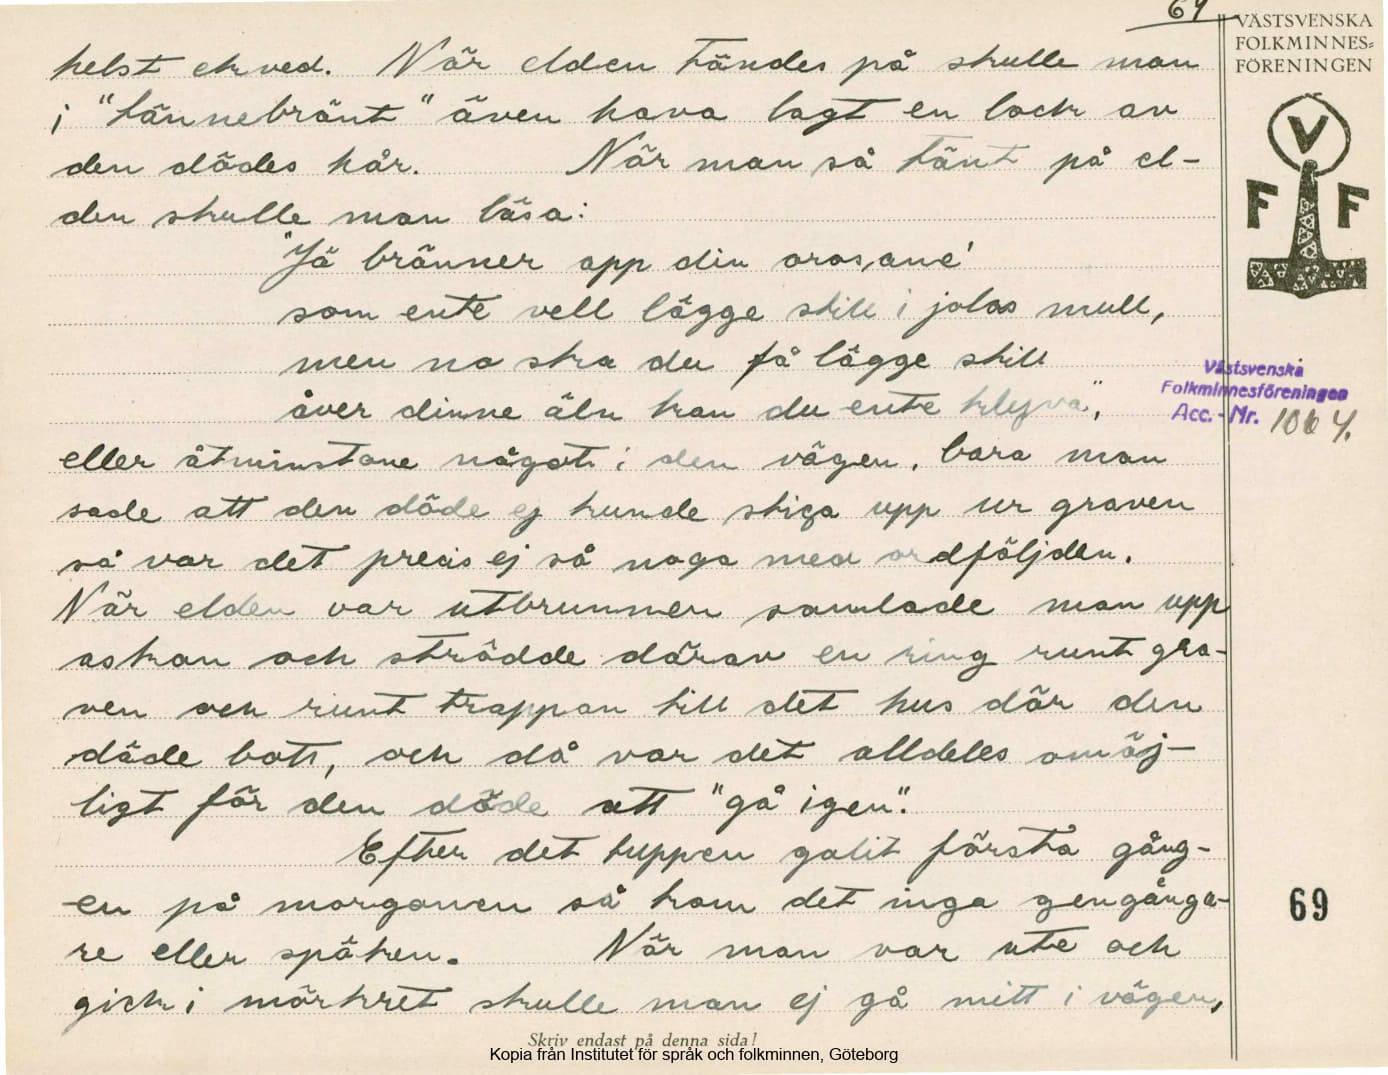 69
VÄSTSVENSKA
FOLKMINNES=
FÖRENINGEN
V
F F
helst ekved. När elden tändes på skulle man
i "tännebränt" även hava lagt en lock av
den dödes hår. När man så tänt på el-
den skulle man läsa:
"Jä bränner opp din orosane'
som ente vell lägge still i jolas mull,
men no ska du få lägge still
över dinne äln kan du ente klyva",
eller åtminstone något i den vägen, bara man
sade att den döde ej kunde stiga upp ur graven
så var det precis ej så noga med ordföljden.
När elden var utbrunnen samlade man upp
askan och strödde därav en ring runt gra-
ven och runt trappan till det hus där den
döde bott, och då var det alldeles omöj-
ligt för den döde att "gå igen".
Efter det tuppen galit första gång-
en på morgonen så kom det inga gengånga-
re eller spöken. När man var ute och
gick i mörkret skulle man ej gå mitt i vägen,
Västsvenska
Folkminnesföreningen
Acc.-Nr. 1064.
69
Skriv endast på denna sida!
Kopia från Institutet för språk och folkminnen, Göteborg